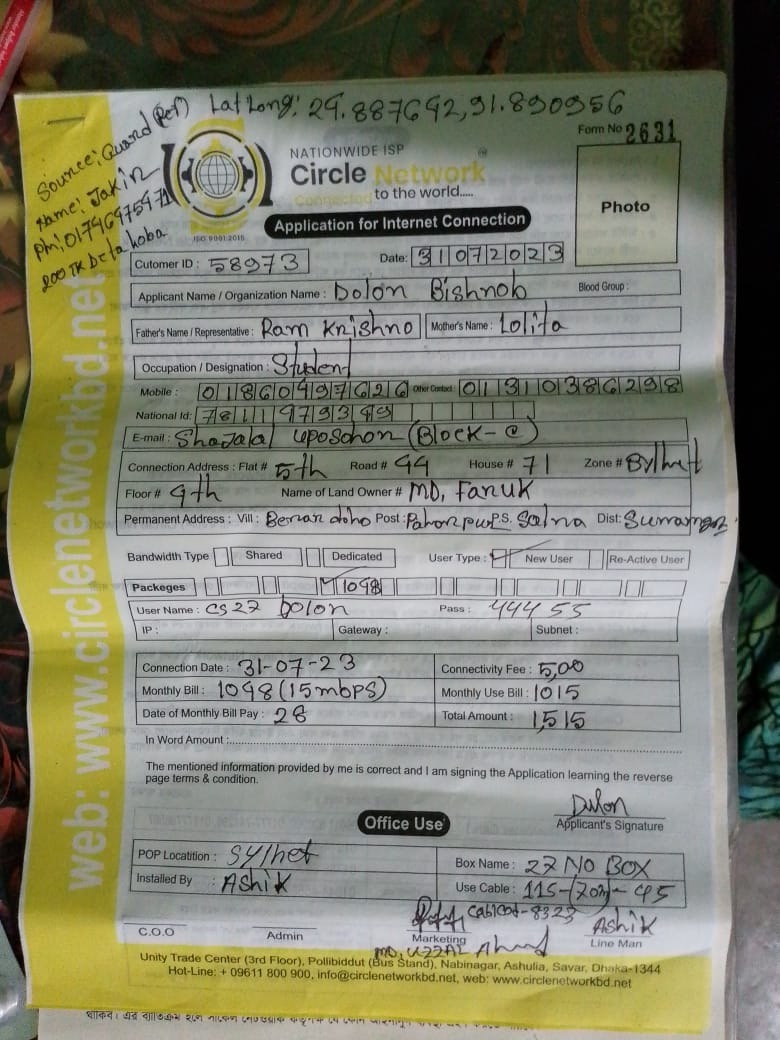 Lat Long: 24.887642,91.890956
Source: Guard (Ref)
Name: Jakin
Ph: 01746975471
200 TK Deta hoba
Form No 2631
NATIONWIDE ISP
Circle Network
Connected to the world.....
ISO 9001:2015
Application for Internet Connection
Photo
Cutomer ID : 58973 Date: 31072023
Applicant Name / Organization Name : Dolon Bishnob Blood Group :
Father's Name / Representative : Ram Krishno Mother's Name : Lolita
Occupation / Designation : Student
Mobile : 01860497626 Other Contact : 01310386298
National Id: 7811979349
E-mail : Shajalal uposohon (Block-C)
Connection Address : Flat # 5th Road # 44 House # 71 Zone # Sylhet
Floor # 4th Name of Land Owner # MD, Faruk
Permanent Address : Vill : Post : Paharpur P.S. Salna Dist:
Bandwidth Type Shared Dedicated User Type : New User Re-Active User
Packeges 1098
User Name : cs27 Dolon Pass : 444 55
IP : Gateway : Subnet :
Connection Date : 31-07-23 Connectivity Fee : 5,00
Monthly Bill : 1098 (15mbps) Monthly Use Bill : 1015
Date of Monthly Bill Pay : 28 Total Amount : 1,515
In Word Amount :
The mentioned information provided by me is correct and I am signing the Application learning the reverse
page terms & condition.
Dulon
Applicant's Signature
Office Use
POP Locatition : Sylhet Box Name : 27 NO BOX
Installed By : Ashik Use Cable : 115-70m-45
Cablcod-8323 Ashik
C.O.O Admin Marketing Line Man
MD, UZZAL Ahmed
Unity Trade Center (3rd Floor), Pollibiddut (Bus Stand), Nabinagar, Ashulia, Savar, Dhaka-1344
Hot-Line: + 09611 800 900, info@circlenetworkbd.net, web: www.circlenetworkbd.net
web: www.circlenetworkbd.net